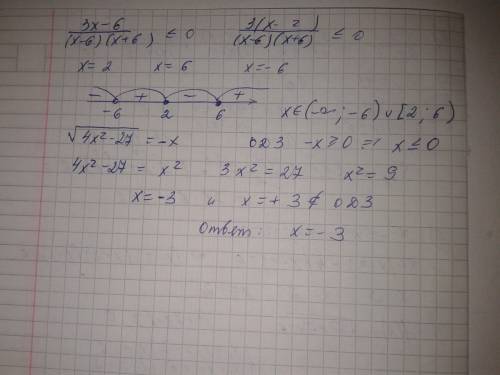 (3x-6)/((x-6)(x+6)) ≤ 0   3(x-2)/((x-6)(x+6)) ≤ 0
x=2   x=6   x=-6
- + - +
-6 2 6   x∈(-∞;-6)∪[2;6)
√(4x²-27) = -x   ОДЗ -x≥0 ⇒ x≤0
4x²-27 = x²   3x²=27   x²=9
x=-3 и x=+3 ∉ ОДЗ
Ответ: x=-3